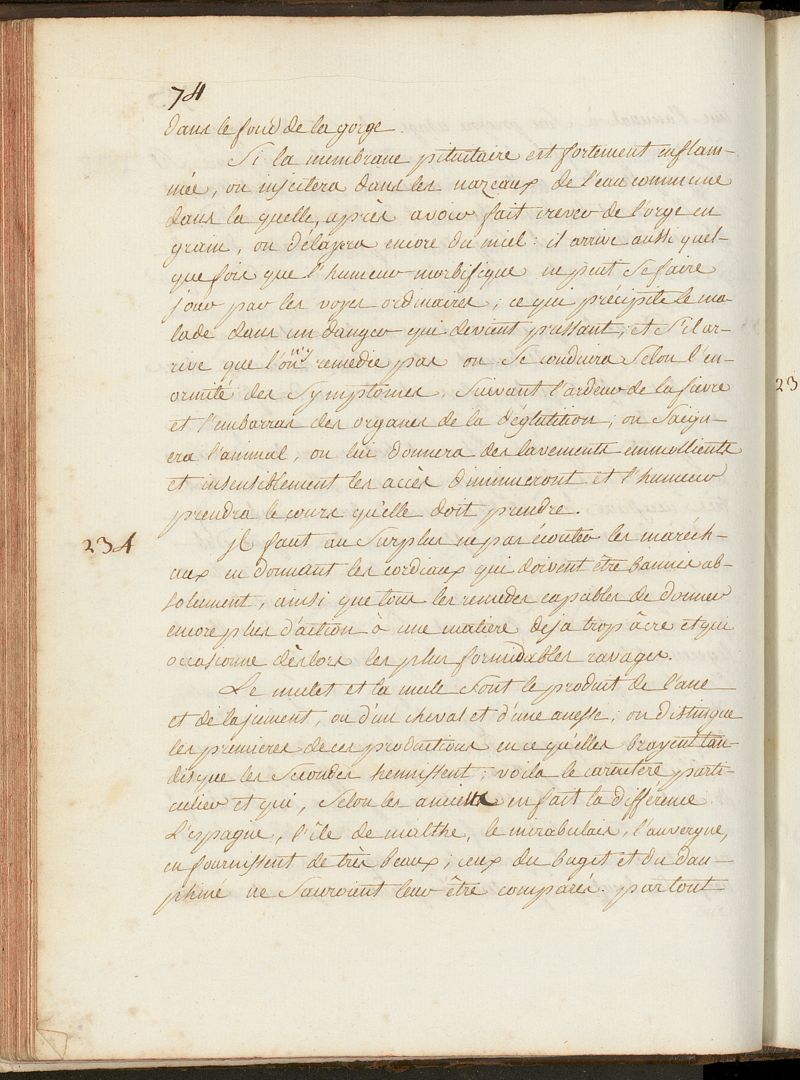 74
dans le fond de la gorge.
Si la membrane pituitaire est fortement enflam-
mée, on injectera dans les nazeaux de l'eau commune
dans la quelle, après avoir fait crever de l'orge en
grain, on délayera encore du miel: il arrive aussi quel-
que fois que l'humeur morbifique ne peut se faire
jour par les voyes ordinaires, ce qui précipite le ma-
lade dans un danger qui devient pressant, et s'il ar-
rive que l'on n'y remedie pas on se conduira selon l'en-
ormité des symptomes, suivant l'ardeur de la fievre
et l'embarras des organes de la déglutition, on saign-
era l'animal, on lui donnera des lavements emmollients
et insensiblement les accès diminueront et l'humeur
prendra le cours qu'elle doit prendre.
234
Il faut au surplus ne pas écouter les maréch-
aux en donnant les cordiaux qui doivent être bannis ab-
solument, ainsi que tous les remedes capables de donner
encore plus d'action à une matière deja trop âcre et qui
occasionne dès lors les plus formidables ravages.
Le mulet et la mule sont le produit de l'ane
et de la jument, ou d'un cheval et d'une anesse, on distingue
les premieres de ces productions en ce qu'elles brayent tan-
disque les secondes hennissent; voila le caractère parti-
culier et qui, selon les anciens en fait la différence.
L'espagne, l'île de malthe, le mirabalais, l'auvergne,
en fournissent de très beaux; ceux du buget et du dau-
phiné ne sauroient leur être comparés. partout
23